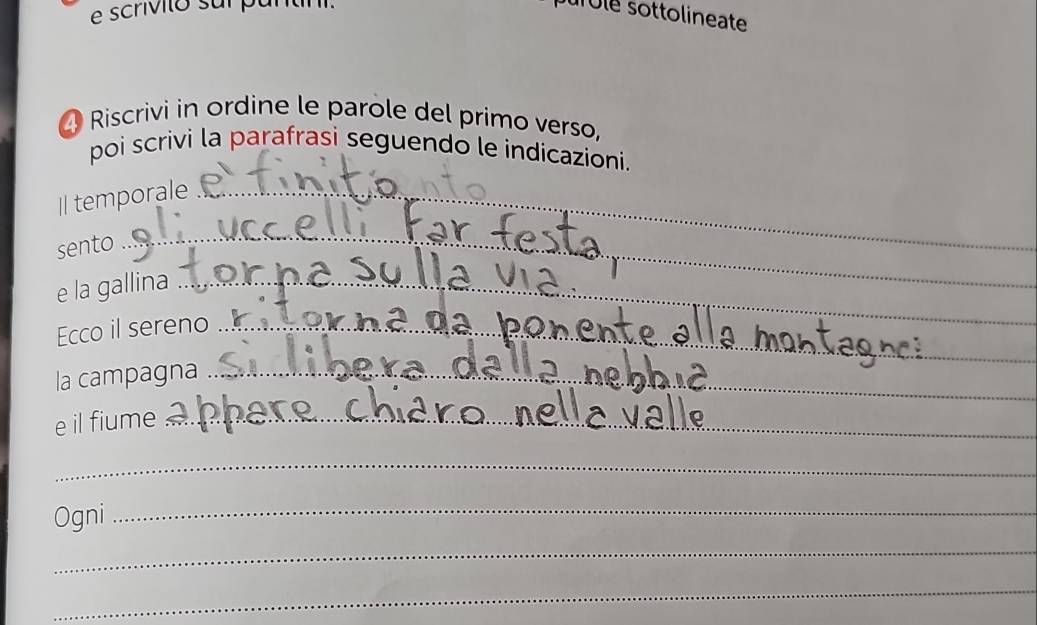 e scrivilo sui puntini.
parole sottolineate
4 Riscrivi in ordine le parole del primo verso,
poi scrivi la parafrasi seguendo le indicazioni.
Il temporale è finito
sento gli uccelli far festa,
e la gallina torna sulla via.
Ecco il sereno ritorna da ponente alla montagne:
la campagna si libera dalla nebbia
e il fiume appare chiaro nella valle
Ogni